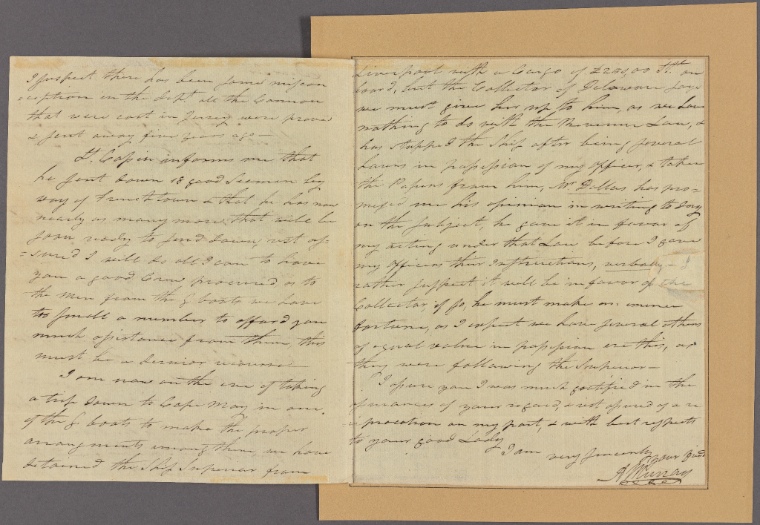 I suspect there has been some miscon
=ception in the Dept all the Cannon
that were cast in Jersey were proved
& sent away five years ago—
Lt. Cassin informs me that
he sent down 18 good Seamen by
way of Frenchtown & that he has now
nearly as many more that will be
soon ready to send down, rest as
=sured I will do all I can to have
you a good Crew procured as to
the men from the G boats we have
too small a number to afford you
much assistance from them, this
must be a dernier
I am now on the eve of taking
a trip down to Cape May in one
of the G boats to make the proper
arrangements among them, we have
detained the Ship Superior from
Liverpool with a Cargo of on
board, but the Collector of Delaware says
we must give her up to him, as we have
nothing to do with the Revenue Law, &
has stopped the Ship after being several
hours in possession of my officer, & taken
the Papers from him, Mr Dallas has pro=
mised me his opinion in writing to day
on the subject, he gave it in favor of
my acting under that Law before I gave
my officers their Instructions, verbally— I
rather suspect it will be in favor of the
Collector, if so he must make an immense
fortune, as I expect we have several others
of equal value in possession ere this, as
they were following the Superior—
I assure you I was much gratified in the
assurances of your regard, & rest assured of a re
=ciprocation on my part, & with best respects
to your good Lady
I am very sincerely your
A Murray